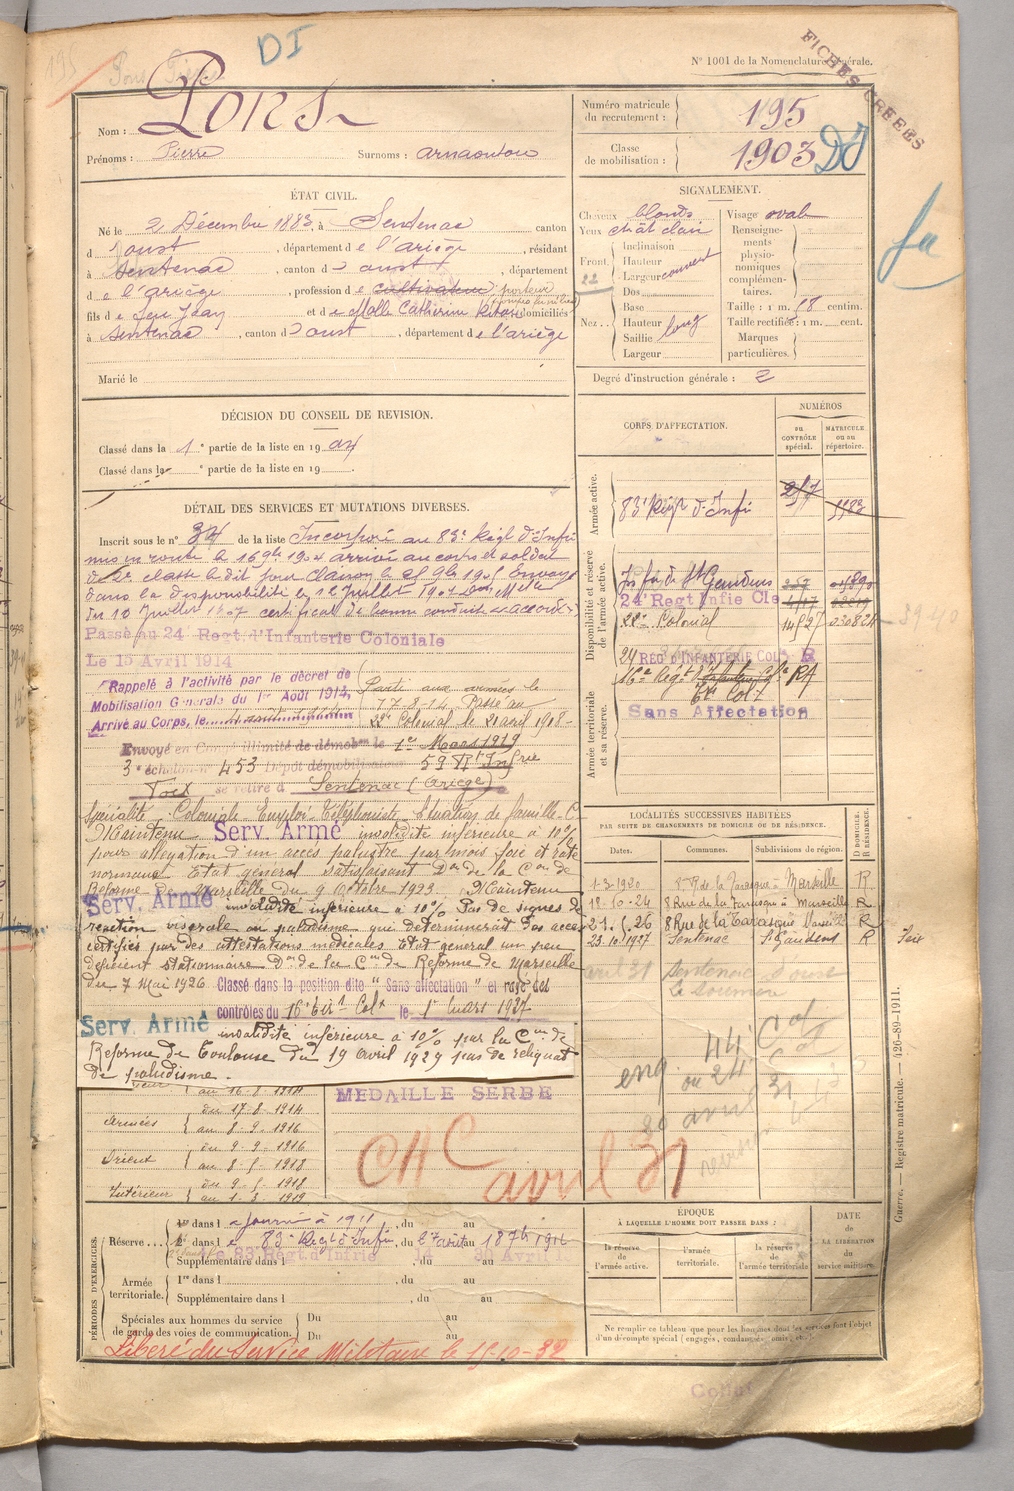 DI
N° 1001 de la Nomenclature générale.
FICHES CREEES
Nom : Pons
Prénoms : Pierre Surnoms : arnaoutou
Numéro matricule du recrutement : 195
Classe de mobilisation : 1903 DI
fa
ÉTAT CIVIL.
Né le 2 Décembre 1883, à Sentenac canton
d'oust, département de l'ariège, résidant
à Sentenac, canton d'oust, département
de l'ariège, profession de cultivateur porteur
fils de feu Jean et de Calle Catherine domiciliés
à Sentenac, canton d'oust, département de l'ariège
Marié le
SIGNALEMENT.
Cheveux blonds
Yeux chât clair
Front. Inclinaison
Hauteur
Largeur couvert
22
Nez.. Dos
Base
Hauteur
Saillie long
Largeur
Visage ovale
Renseignements physionomiques complémentaires.
Taille : 1 m. 58 centim.
Taille rectifiée : 1 m. cent.
Marques particulières.
Degré d'instruction générale : 2
DÉCISION DU CONSEIL DE REVISION.
Classé dans la 1e partie de la liste en 1904
Classé dans la e partie de la liste en 19 .
CORPS D'AFFECTATION.
NUMÉROS
DU CONTRÔLE spécial.
MATRICULE ou au répertoire.
Armée active.
83e Régt d'Infie 257
Disponibilité et réserve de l'armée active.
Inf. de St Gaudens 257
24 Regt Infie Cle
22e Colonial
Armée territoriale et sa réserve.
24 REG D'INFANTERIE COLe R
Sans Affectation
DÉTAIL DES SERVICES ET MUTATIONS DIVERSES.
Inscrit sous le n° 34 de la liste Incorporé au 83e Régt d'Infie
mis en route le 16 9bre 1904 arrivé au corps et soldat
de 2e classe le dit jour Envoyé
dans la disponibilité le 12 Juillet 1907
du 10 Juillet 1907 certificat de bonne conduite accordé
Passé au 24 Regt d'Infanterie Coloniale
Le 15 Avril 1914
Rappelé à l'activité par le décret de
Mobilisation Générale du 1er Août 1914,
Arrivé au Corps, le
Parti aux armées le
17-8-14. Passé au
22e Colonial le 21 avril 1918-
Envoyé en Congé illimité de démobon le 1er Mars 1919
3e échelon n° 453 Dépôt démobilisateur 59 Rt Infrie
Foix se retire à Sentenac (Ariège)
Spécialité : Coloniale Emploi Téléphoniste Situation de famille C
Maintenu Serv. Armé invalidité inférieure à 10%
pour allégation d'un accès palustre par mois foie et rate
normaux Etat général satisfaisant Don de la Con de
Réforme de Marseille du 9 Octobre 1923. Maintenu
Serv. Armé invalidité inférieure à 10% Pas de signes de
réaction viscérale au paludisme que détermineraient des accès
certifiés par des attestations médicales Etat général un peu
déficient stationnaire Don de la Con de Réforme de Marseille
du 7 Mai 1926 Classé dans la position dite "Sans affectation" et rayé des
contrôles du 16e Tirrs Colx le 1er mars 1927
Serv. Armé invalidité inférieure à 10% par la Con de
Réforme de Toulouse du 19 avril 1929 pas de reliquat
de paludisme.
au 16-8-1914
Armées du 17-8-1914
au 8-9-1916
Orient du 9-9-1916
au 8-5-1918
Intérieur du 9-5-1918
au 1-3-1919
MEDAILLE SERBE
CHC avril 31
LOCALITÉS SUCCESSIVES HABITÉES
PAR SUITE DE CHANGEMENTS DE DOMICILE OU DE RÉSIDENCE.
Dates. Communes. Subdivisions de région. D domicile. R résidence.
1-3-1920 8 Rue de la Tarasque à Marseille R
18-10-24 8 Rue de la Tarasque à Marseille R
21.5.26 8 Rue de la Tarasque Marseille R
23.10.1927 Sentenac St Gaudens R
Foix
avril 31 Sentenac d'oust
44e Col
ou 24e Col
30 avril 31
Guerre. — Registre matricule. — 426-89-1911.
PÉRIODES D'EXERCICES.
Réserve... 1re dans l , du au
2e dans le 83e Régt d'Infie, du au
83 Régt d'Infrie Avril
Supplémentaire dans l
Armée territoriale. 1re dans l , du au
Supplémentaire dans l , du au
Spéciales aux hommes du service de garde des voies de communication. Du au
Du au
Libéré du Service Militaire le 15-10-32
ÉPOQUE
À LAQUELLE L'HOMME DOIT PASSER DANS :
la réserve de l'armée active.
l'armée territoriale.
la réserve de l'armée territoriale
DATE DE LA LIBÉRATION du service militaire.
Ne remplir ce tableau que pour les hommes dont les services font l'objet
d'un décompte spécial (engagés, condamnés, omis, etc.).